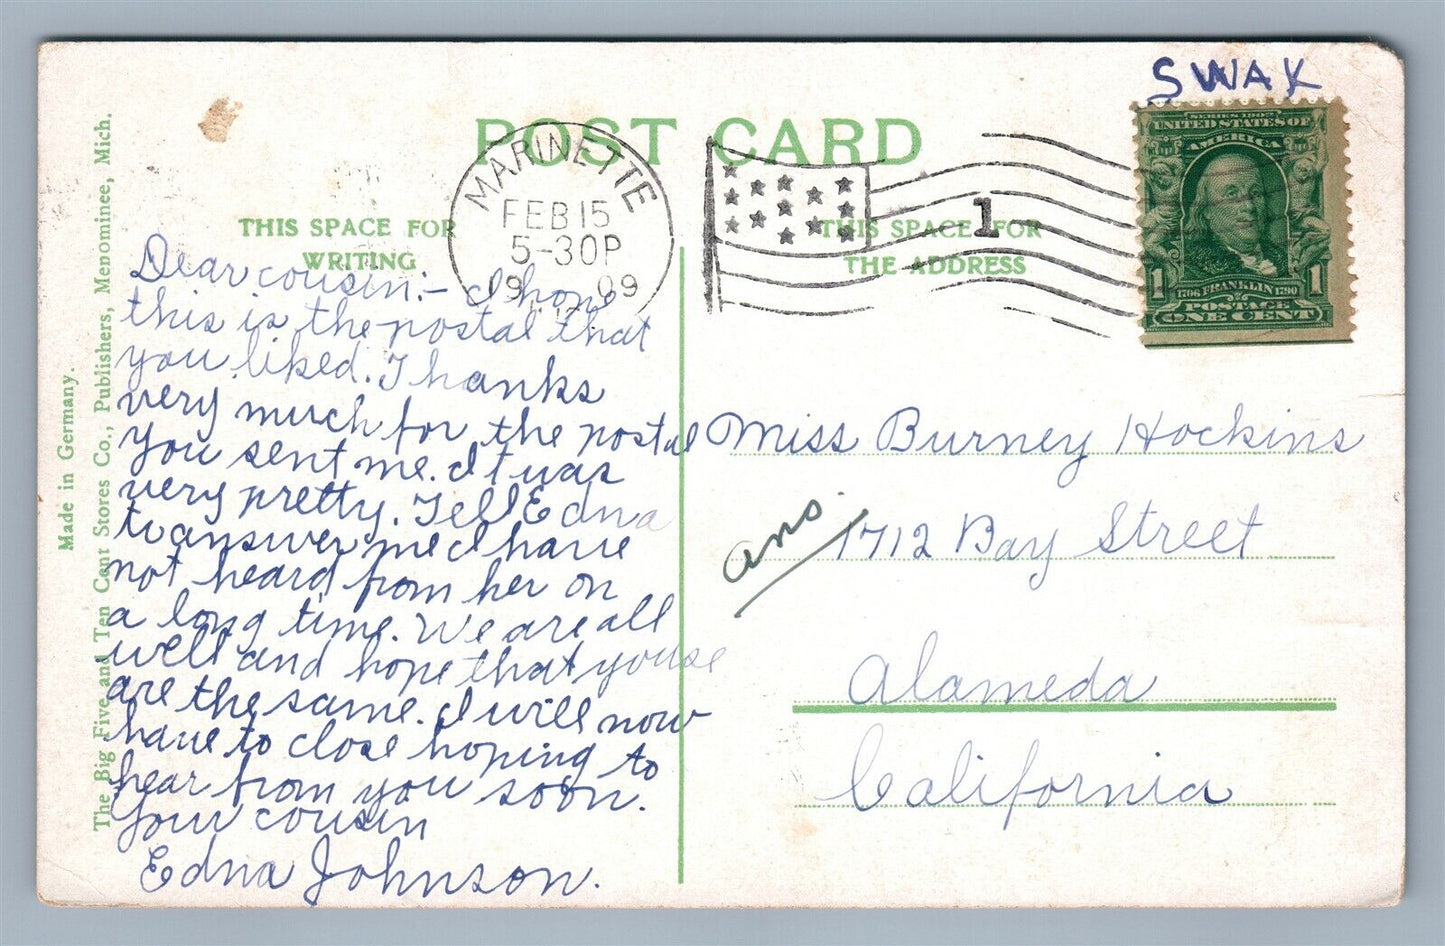 SWAK
POST CARD
SERIES 1902
UNITED STATES OF
AMERICA
1 1706 FRANKLIN 1790 1
POSTAGE
ONE CENT
MARINETTE
FEB 15
5-30P
1909
1
THIS SPACE FOR
WRITING
THIS SPACE FOR
THE ADDRESS
Dear cousin:- I hope
this is the postal that
you liked. Thanks
very much for the postal
you sent me. It was
very pretty. Tell Edna
to answer me I have
not heard from her on
a long time. We are all
well and hope that youse
are the same. I will now
have to close hoping to
hear from you soon.
Your cousin
Edna Johnson.
Miss Burney Hockins
ans.
1712 Bay Street
Alameda
California
Made in Germany.
The Big Five and Ten Cent Stores Co., Publishers, Menominee, Mich.